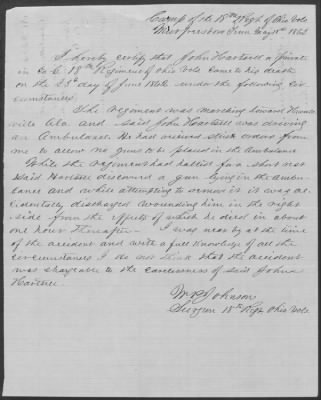 Camp of the 18th Regt of Ohio Vols
Murfreesboro Tenn May 18th 1863
I hereby certify that John Hartzell a private
in Co C. 18th Regiment of Ohio Vols came to his death
on the 23d day of June 1862 under the following cir
cumstances.
The regiment was marching towards Hunts
ville Ala and said John Hartzell was driving
an Ambulance. He had received strict orders from
me to allow no guns to be placed in the Ambulance
While the regiment had halted for a short rest
said Hartzell discovered a gun lying in the ambu-
lance and while attempting to remove it it was ac-
cidentally discharged wounding him in the right
side from the effects of which he died in about
one hour thereafter— I was near by at the time
of the accident and with a full knowledge of all the
circumstances I do not think that the accident
was chargeable to the carelessness of said John
Hartzell
Johnson
Surgeon 18th Regt Ohio Vols